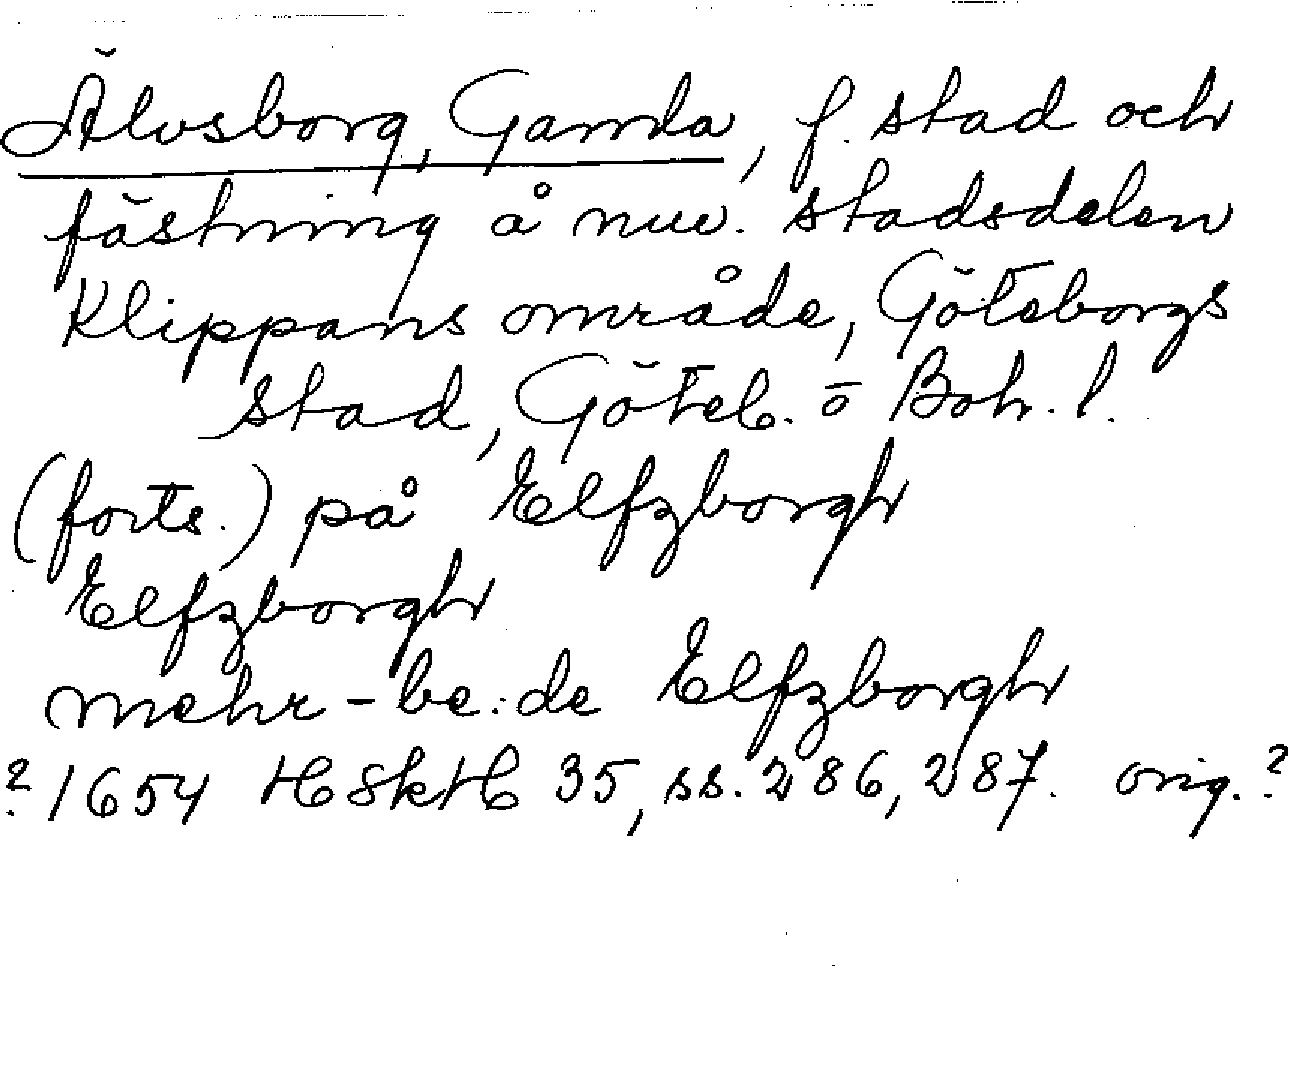 Älvsborg, Gamla, f. stad och
fästning å nuv. stadsdelen
Klippans område, Göteborgs
stad, Göteb. o Boh. l.
(forts.) på Elfzborgh
Elfzborgh
mehr-be:de Elfzborgh
? 1654 HSkH 35, ss. 286, 287. orig.?